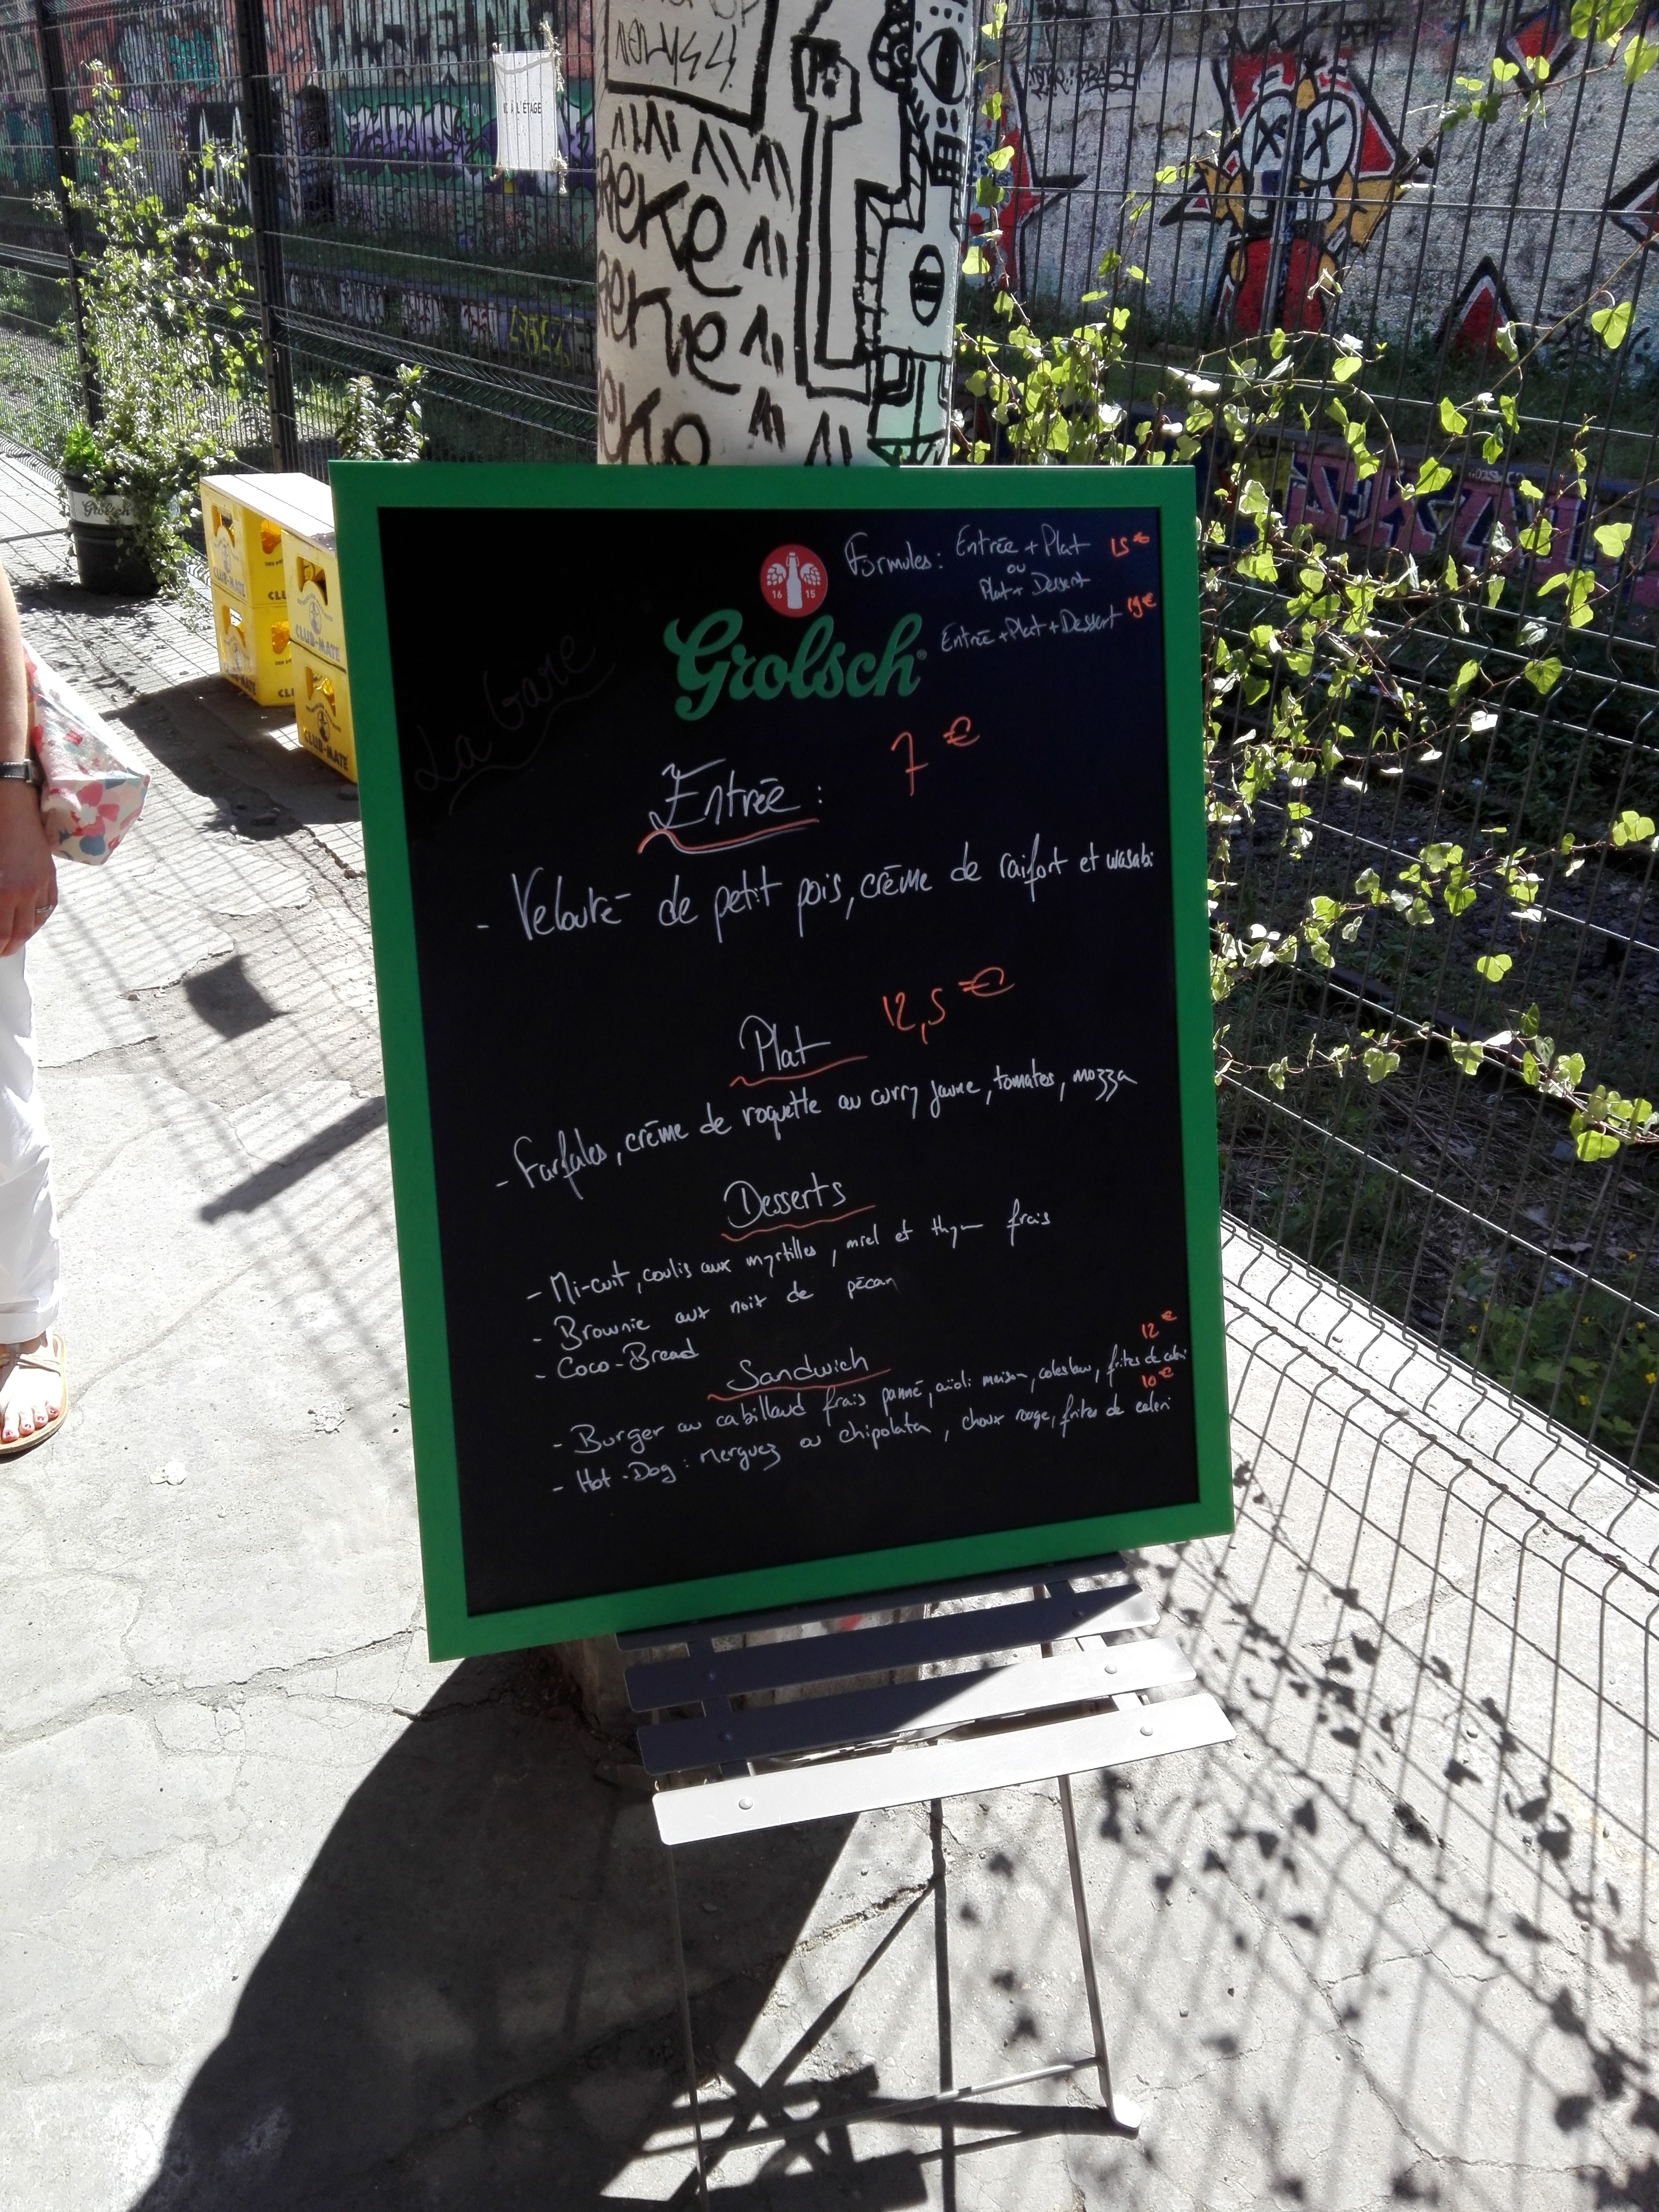 À L'ÉTAGE
Grolsch
CLUB-MATE
CLUB-MATE
CLUB-MATE
CLUB-MATE
La Gare
16 15
Grolsch
Formules: Entrée + Plat 15€
ou
Plat + Dessert
Entrée + Plat + Dessert 19€
Entrée : 7 €
- Velouté de petit pois, crème de raifort et wasabi
Plat 12,5 €
- Farfales, crème de roquette au curry jaune, tomates, mozza
Desserts
- Mi-cuit, coulis aux myrtilles, miel et thym frais
- Brownie aux noix de pécan
- Coco-Bread
Sandwich
12 €
- Burger au cabillaud frais panné, aïoli maison, coleslaw, frites de céleri
10 €
- Hot-Dog : merguez ou chipolata, choux rouge, frites de celeri